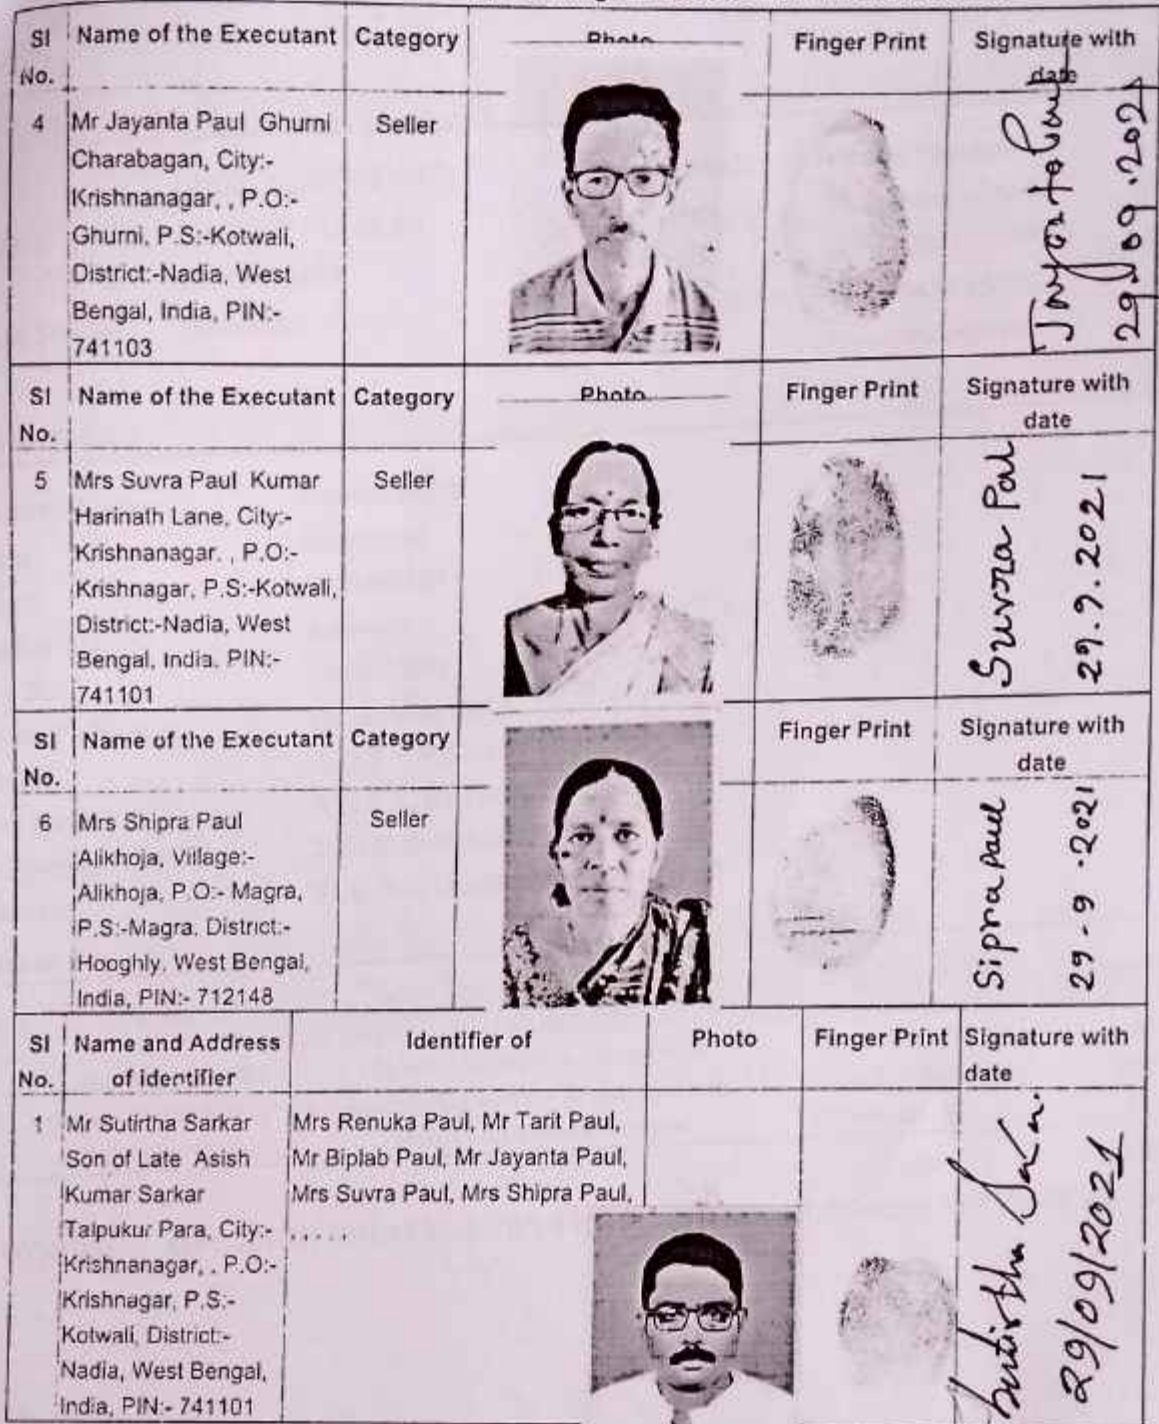 Sl No. Name of the Executant Category Photo Finger Print Signature with date
4 Mr Jayanta Paul Ghurni Seller
Charabagan, City:-
Krishnanagar, , P.O:-
Ghurni, P.S:-Kotwali,
District:-Nadia, West
Bengal, India, PIN:-
741103
29/09.2021
Sl No. Name of the Executant Category Photo Finger Print Signature with date
5 Mrs Suvra Paul Kumar Seller
Harinath Lane, City:-
Krishnanagar. , P.O:-
Krishnagar, P.S:-Kotwali,
District:-Nadia, West
Bengal, India. PIN:-
741101
Suvra Pal
29.9.2021
Sl No. Name of the Executant Category Finger Print Signature with date
6 Mrs Shipra Paul Seller
Alikhoja, Village:-
Alikhoja, P.O:- Magra,
P.S:-Magra, District:-
Hooghly, West Bengal,
India, PIN:- 712148
Sipra Paul
29-9-2021
Sl No. Name and Address of identifier Identifier of Photo Finger Print Signature with date
1 Mr Sutirtha Sarkar
Son of Late Asish
Kumar Sarkar
Talpukur Para, City:-
Krishnanagar, . P.O:-
Krishnagar, P.S:-
Kotwali, District:-
Nadia, West Bengal,
India, PIN:- 741101
Mrs Renuka Paul, Mr Tarit Paul,
Mr Biplab Paul, Mr Jayanta Paul,
Mrs Suvra Paul, Mrs Shipra Paul,
, , , , ,
29/09/2021